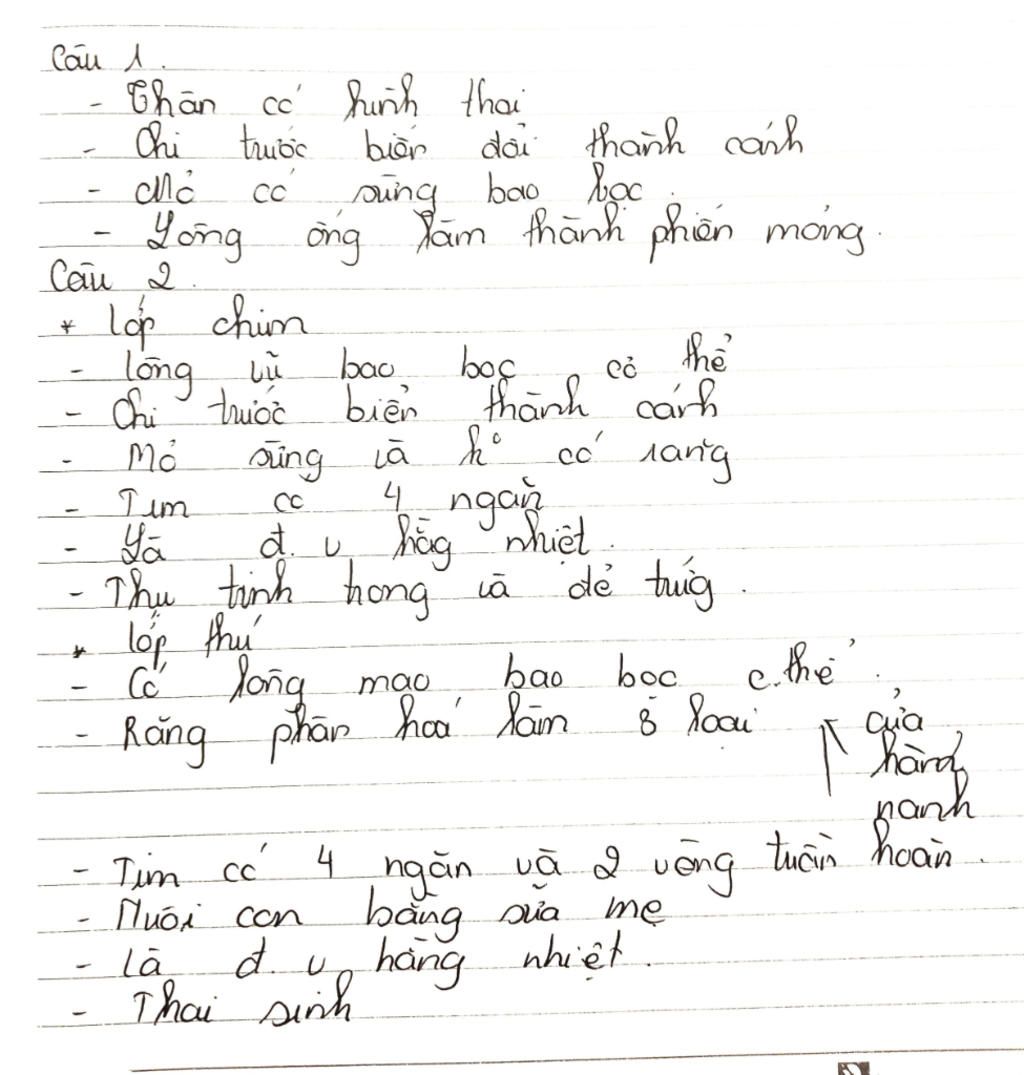 Câu 1.
- Thân có hình thoi
- Chi trước biến đổi thành cánh
- Mỏ có sừng bao bọc.
- Lông ống làm thành phiến mỏng.
Câu 2.
* lớp chim
- lông vũ bao bọc cơ thể
- Chi trước biến thành cánh
- Mỏ sừng và k° có răng
- Tim có 4 ngăn
- Là đ.v hằg nhiệt.
- Thụ tinh trong và đẻ trứg.
* lớp thú
- Có lông mao bao bọc c.thể.
- Răng phân hoá làm 3 loại cửa
hàm
nanh
- Tim có 4 ngăn và 2 vòng tuần hoàn.
- Nuôi con bằng sữa mẹ
- là đ.v hằng nhiệt.
- Thai sinh